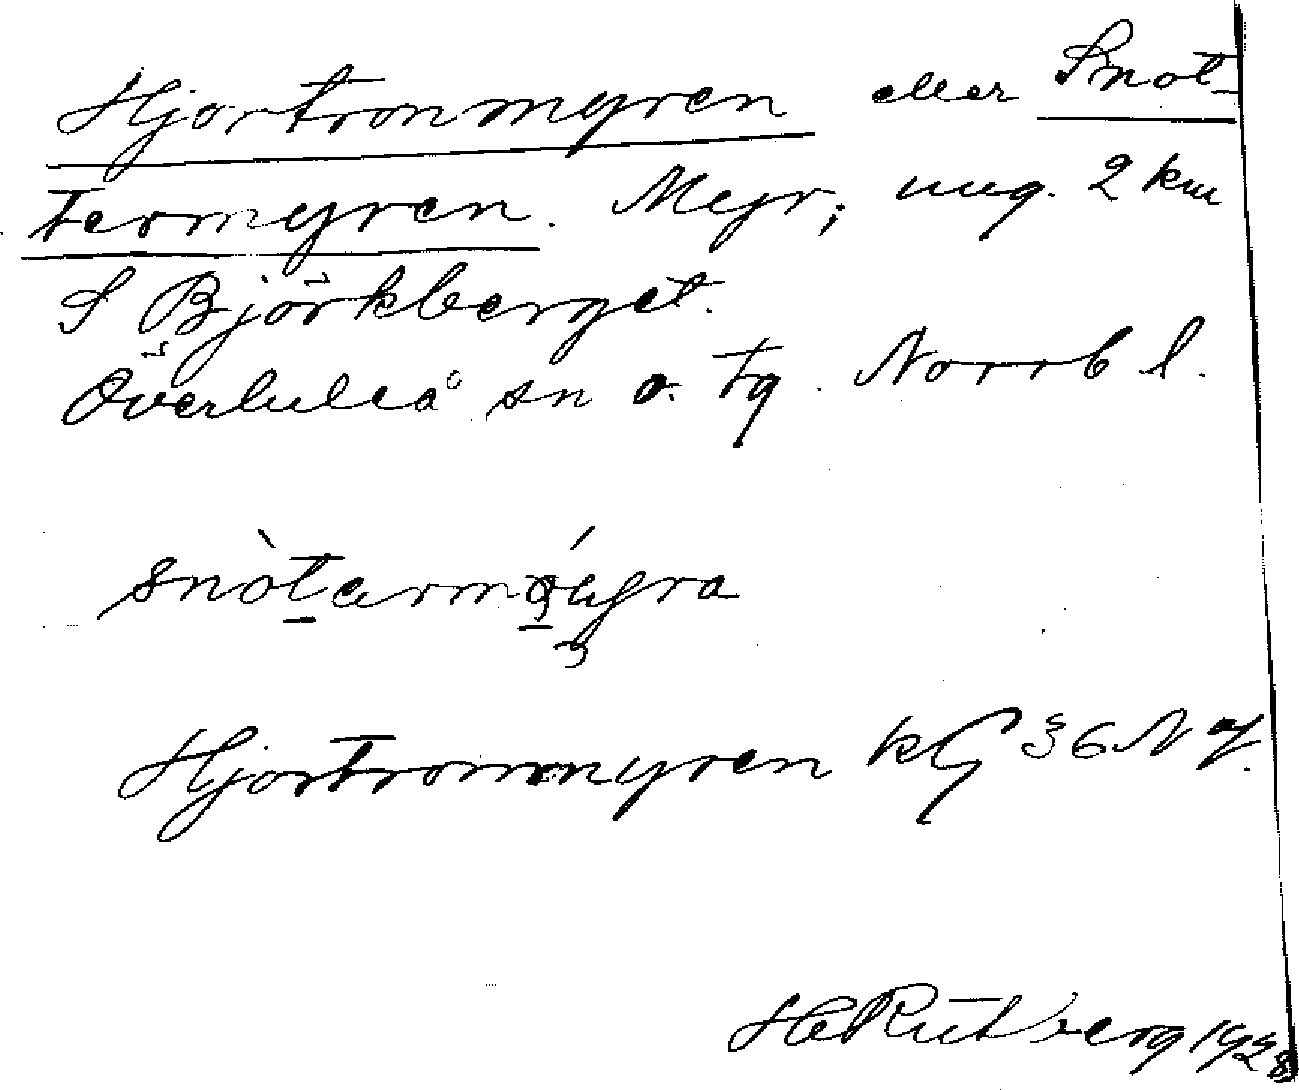 Hjortronmyren eller Snot-
termyren. Myr; ung. 2 km
S Björkberget.
Överluleå sn o. tg. Norrb l.
Hjortronmyren kG 36 N
H Rutberg 1928